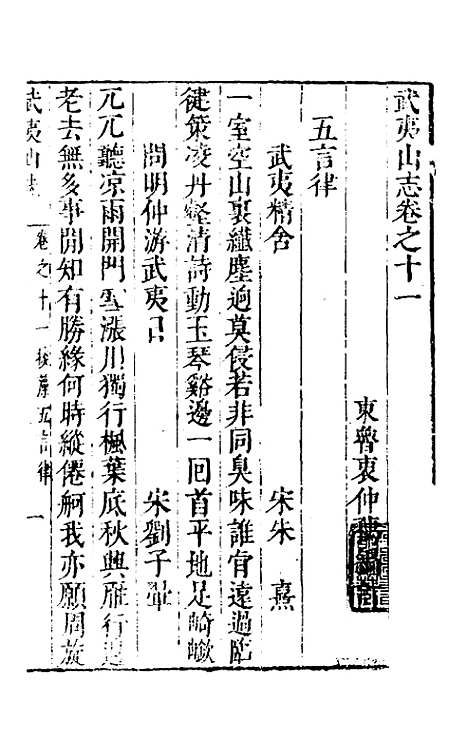 武夷山志卷之十一
東魯衷仲
五言律
武夷精舍 宋朱熹
一室空山裏纖塵迥莫侵若非同臭味誰肯遠過臨
徤策凌丹壑清詩動玉琴谿邊一回首平地足崎嶔
問明仲游武夷日 宋劉子翬
兀兀聽凉雨開門雪漲川獨行楓葉底秋興雁行邊
老去無多事閒知有勝緣何時縱倦舸我亦願周旋
武夷山志 卷之十一 五言律 一